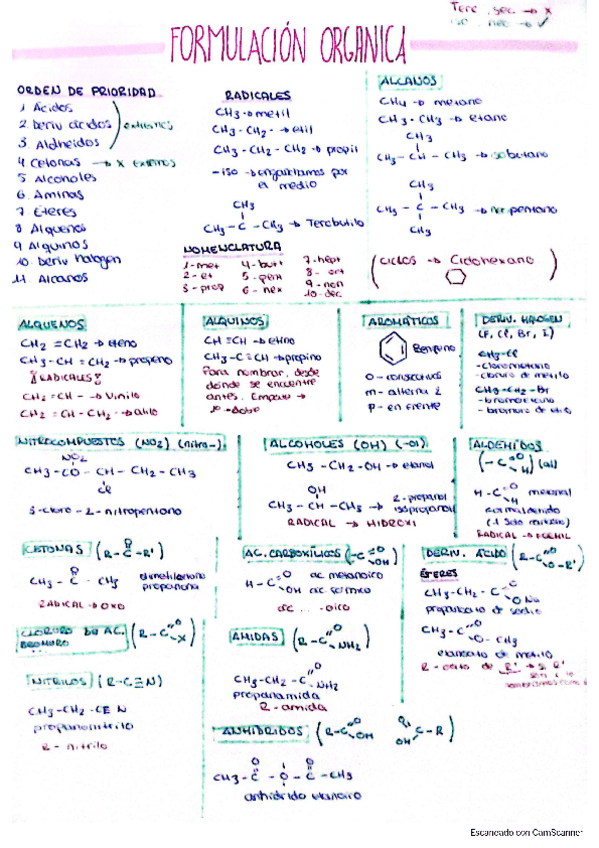 Terc, sec → x
iso, neo → ✓
FORMULACIÓN ORGANICA
ORDEN DE PRIORIDAD
1 Ácidos
2 Deriv ácidos
3. Aldheidos
extremos
4 Cetonas → x extremos
5 Alcoholes
6 Aminas
7 Eteres
8 Alquenos
9 Alquinos
10 Deriv halogen
11 Alcanos
RADICALES
CH3 → metil
CH3-CH2- → etil
CH3-CH2-CH2 → propil
-iso → enganchamos por
el medio
CH3
CH3-C-CH3 → Tercbutilo
NOMENCLATURA
1-met 4-but 7-hept
2-et 5-pent 8-oct
3-prop 6-hex 9-non
10-dec
ALCANOS
CH4 → metano
CH3-CH3 → etano
CH3
CH3-CH-CH3 → isobutano
CH3
CH3-C-CH3 → neopentano
CH3
(CICLOS → Ciclohexano)
ALQUENOS
CH2=CH2 → eteno
CH3-CH=CH2 → propeno
RADICALES
CH2=CH- → Vinilo
CH2=CH-CH2- → alilo
ALQUINOS
CH≡CH → etino
CH3-C≡CH → propino
Para nombrar, desde
donde se encuentre
antes. Empate →
1º doble
AROMÁTICOS
Benceno
o - consecutivos
m - alterna 2
p - en frente
DERIV. HALOGEN
(F, Cl, Br, I)
CH3-Cl
-clorometano
-cloruro de metilo
CH3-CH2-Br
-bromoetano
-bromuro de etilo
NITROCOMPUESTOS (NO2) (nitro-)
NO2
CH3-CO-CH-CH2-CH3
Cl
3-cloro-2-nitropentano
ALCOHOLES (OH) (-ol)
CH3-CH2-OH → etanol
OH
CH3-CH-CH3 → 2-propanol
isopropanol
RADICAL → HIDROXI
ALDEHIDOS
(-C=O H) (al)
H-C=O H metanal
formaldehido
RADICAL → FORMIL
CETONAS (R-C-R')
O
CH3-C-CH3 dimetilcetona
propanona
RADICAL → OXO
AC. CARBOXÍLICOS (-C=O OH)
H-C=O OH ac metanoico
ac formico
ac ... -oico
DERIV. ÁCIDO (R-C=O O-R')
ÉSTERES
CH3-CH2-C=O O Na
propanoato de sodio
CH3-C=O O-CH3
etanoato de metilo
CLORURO DE AC. (R-C=O X)
BROMURO
AMIDAS (R-C=O NH2)
CH3-CH2-C=O NH2
propanamida
R-amida
NITRILOS (R-C≡N)
CH3-CH2-C≡N
propanonitrilo
R-nitrilo
ANHIDRIDOS (R-C=O OH O OH C-R)
O O
CH3-C-O-C-CH3
anhidrido etanoico
Escaneado con CamScanner